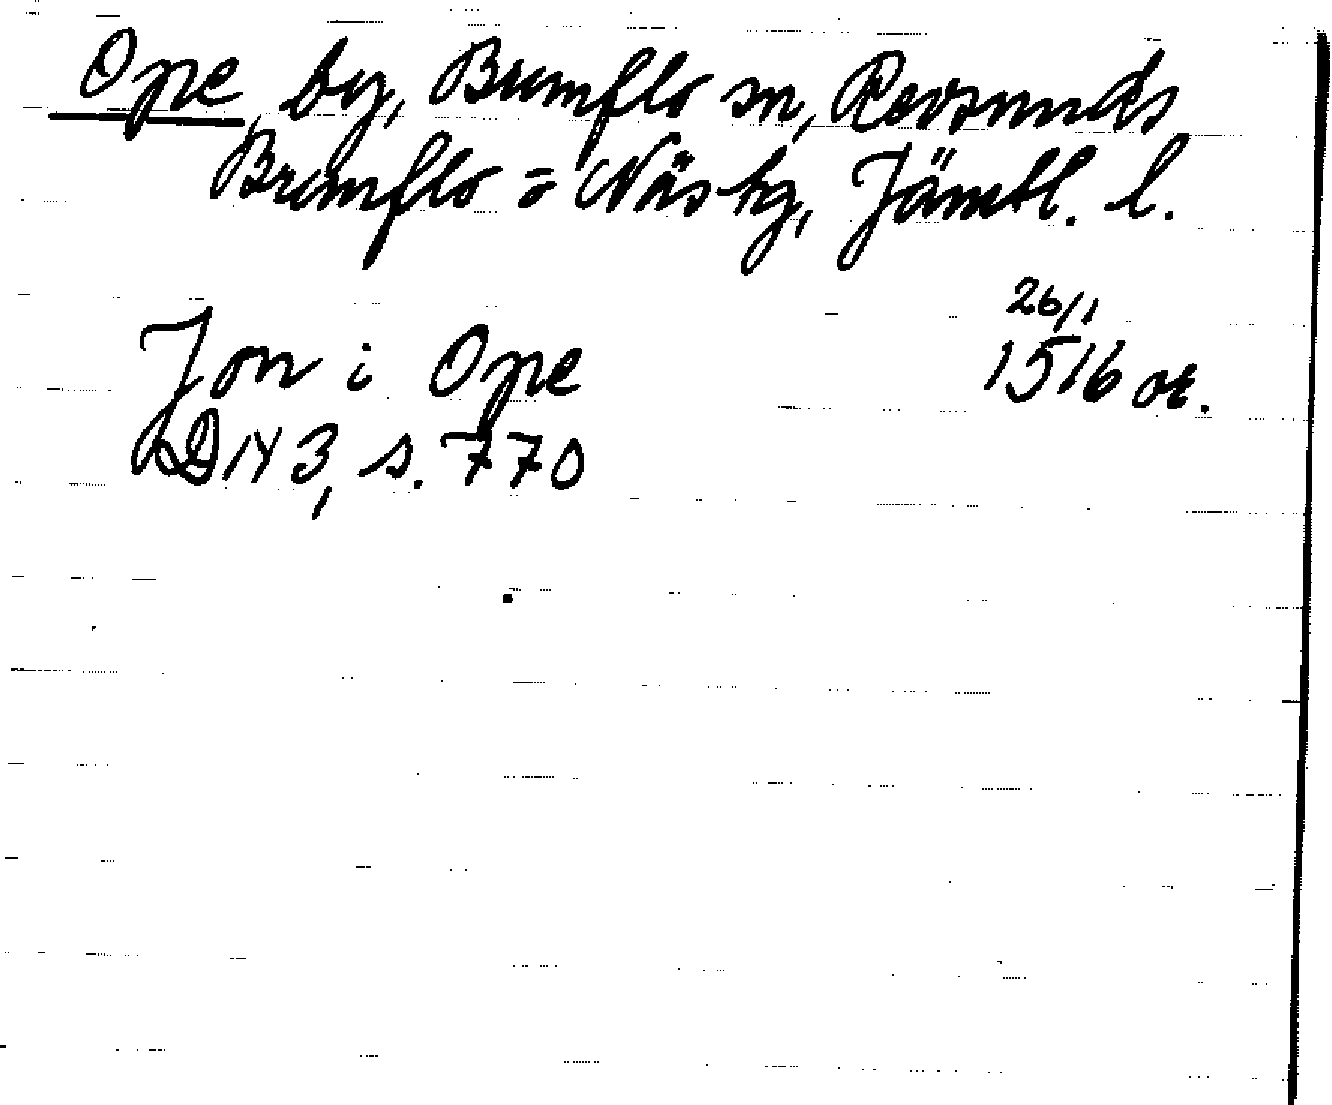 Ope, by, Brunflo sn, Revsunds
Brunflo o Näs tg, Jämtl. l.
26/1
Jon i Ope 1516 or.
DN 3, s. 770